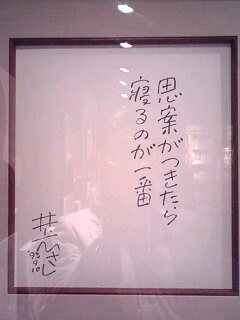 思案がつきたら
寝るのが一番
井上ひさし
'93
9.10